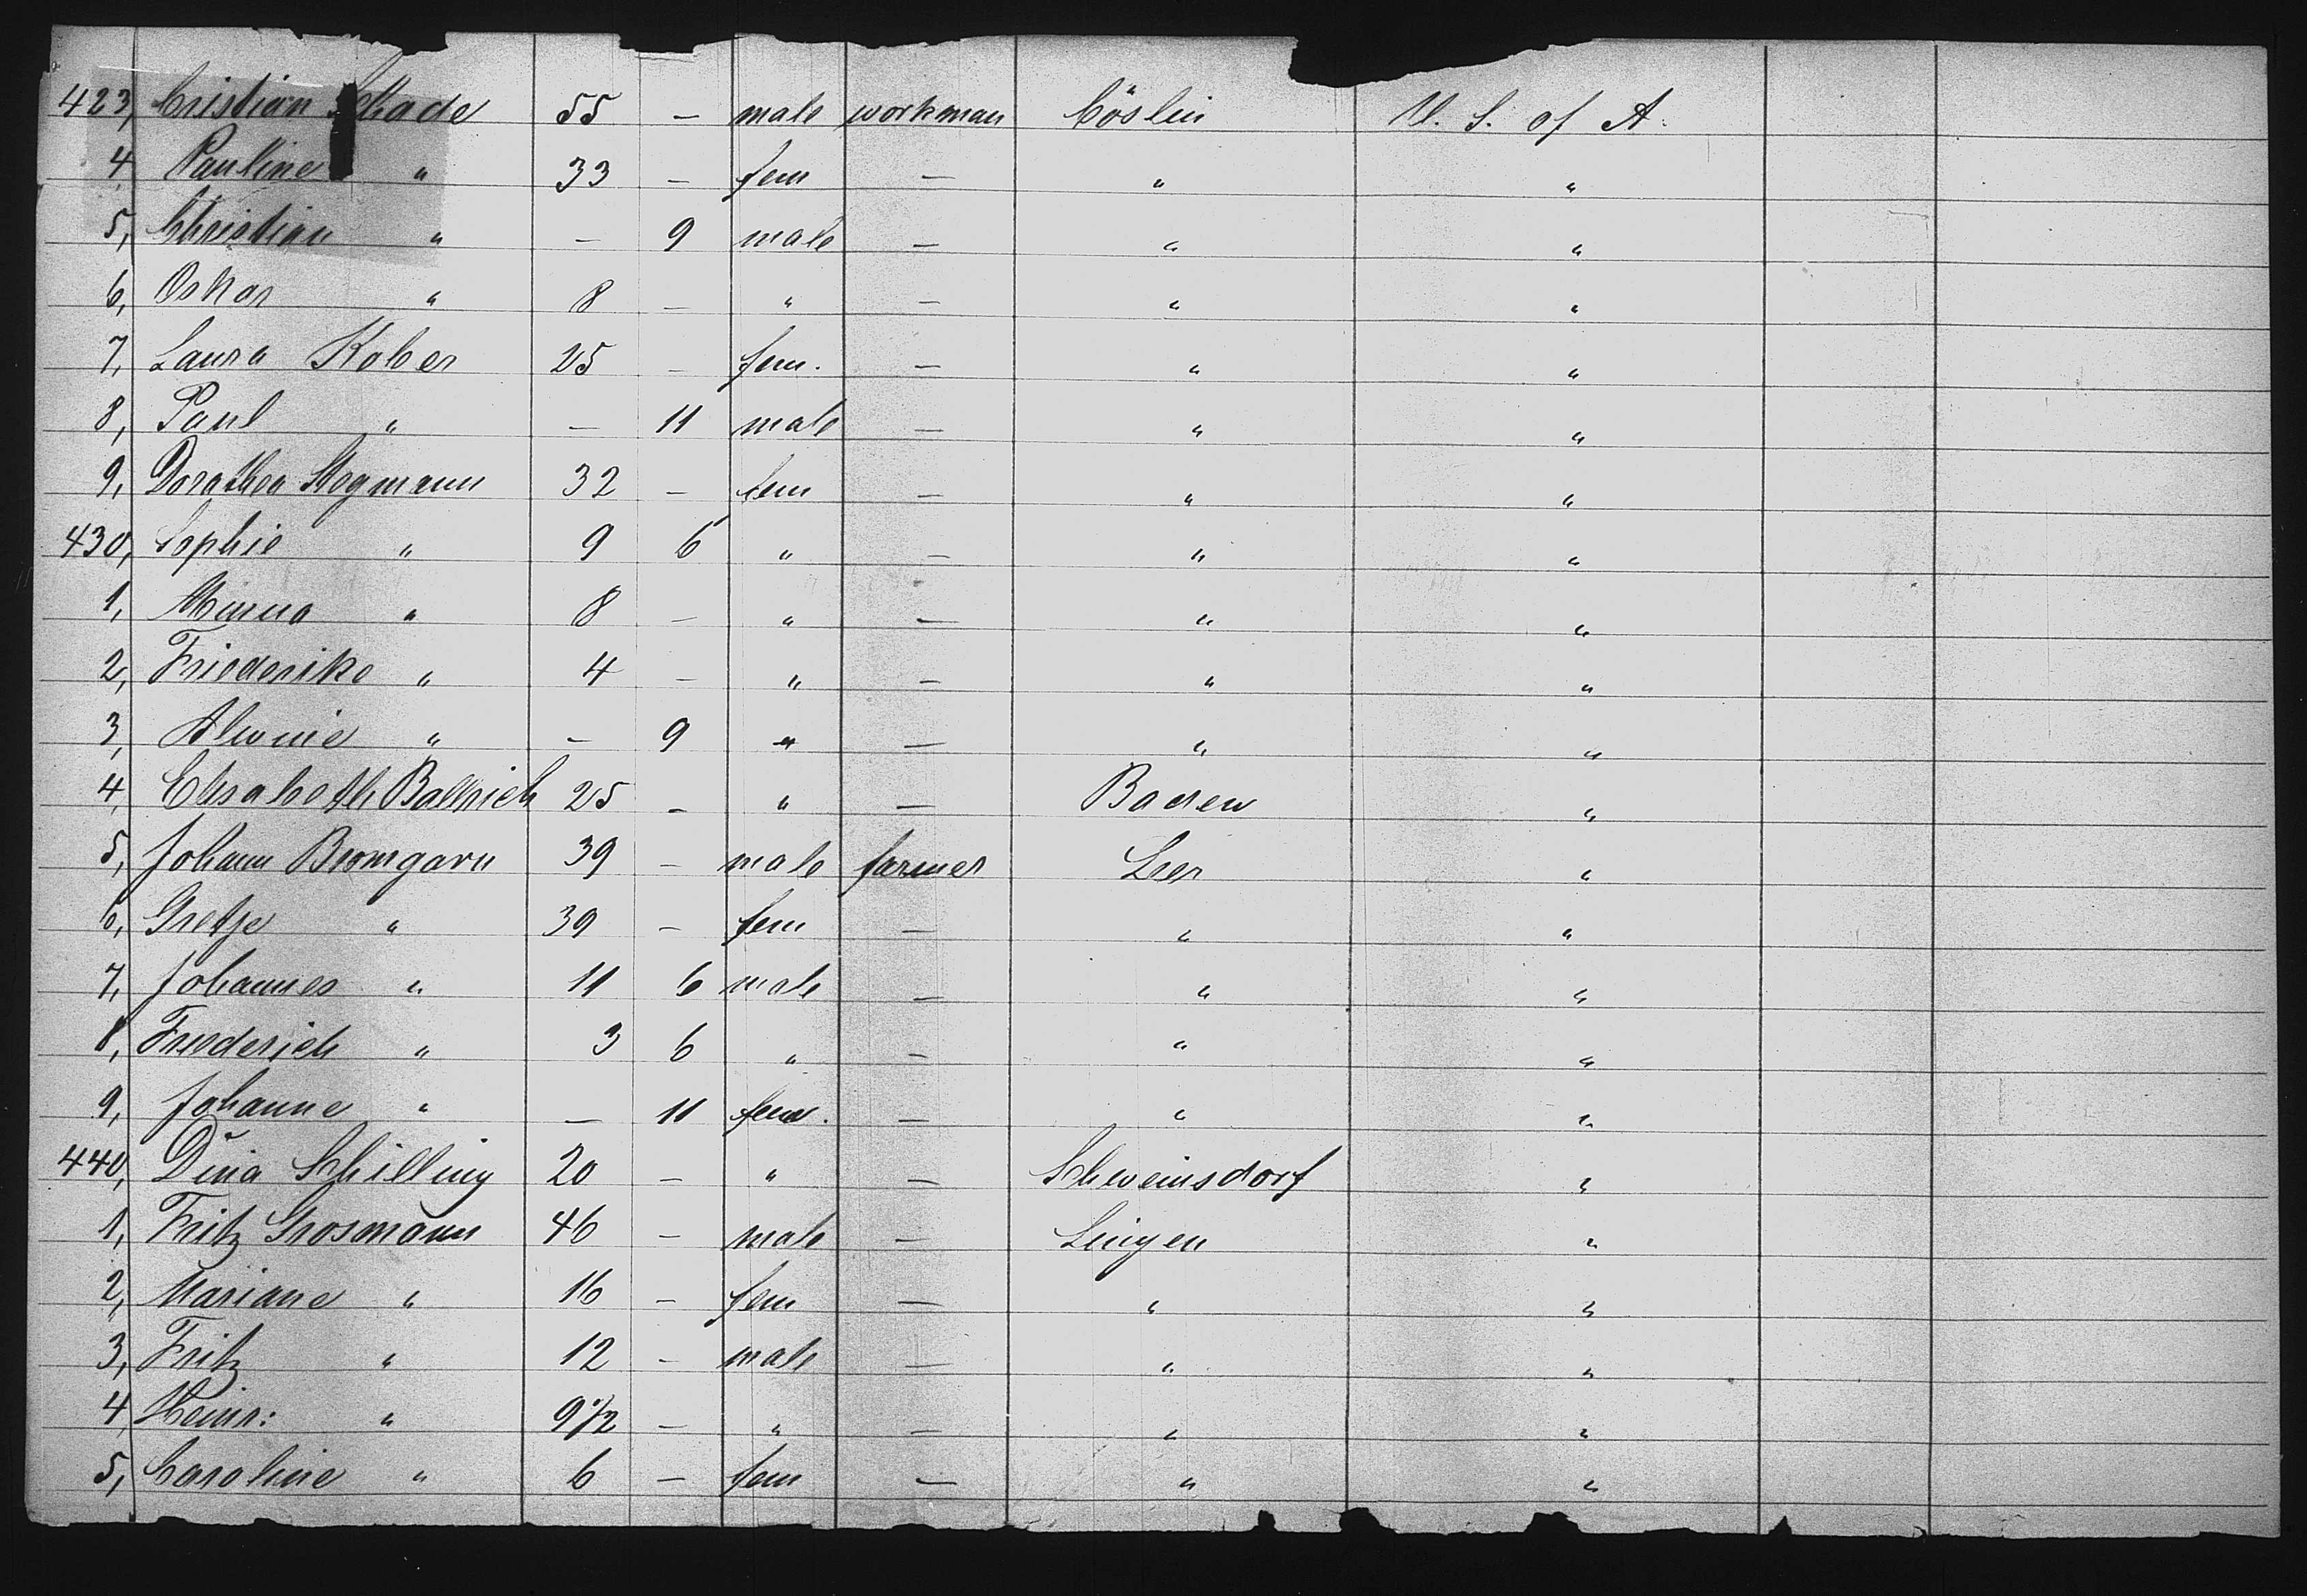 423, Cristian Schade 55 — male workman Cöslin U. S. of A.
4 Pauline " 33 — fem — " "
5, Christian " — 9 male — " "
6, Oskar " 8 — " — " "
7, Laura Kober 25 — fem. — " "
8, Paul " — 11 male — " "
9, Dorathea Stegmann 32 — fem — " "
430, Sophie " 9 6 " — " "
1, Minna " 8 — " — " "
2, Friederike " 4 — " — " "
3, Alwine " — 9 " — " "
4, Elisabeth Ballrich 25 — " — Baden "
5, Johann Bromgarn 39 — male farmer Leer "
6, Gretje " 39 — fem — " "
7, Johannes " 11 6 male — " "
8, Friederich " 3 6 " — " "
9, Johanne " — 11 fem. — " "
440, Dina Schilling 20 — " — Schweinsdorf "
1, Fritz Grosmann 46 — male — Lingen "
2, Mariane " 16 — fem — " "
3, Fritz " 12 — male — " "
4, Heinr: " 9 1/2 — " — " "
5, Caroline " 6 — fem — " "